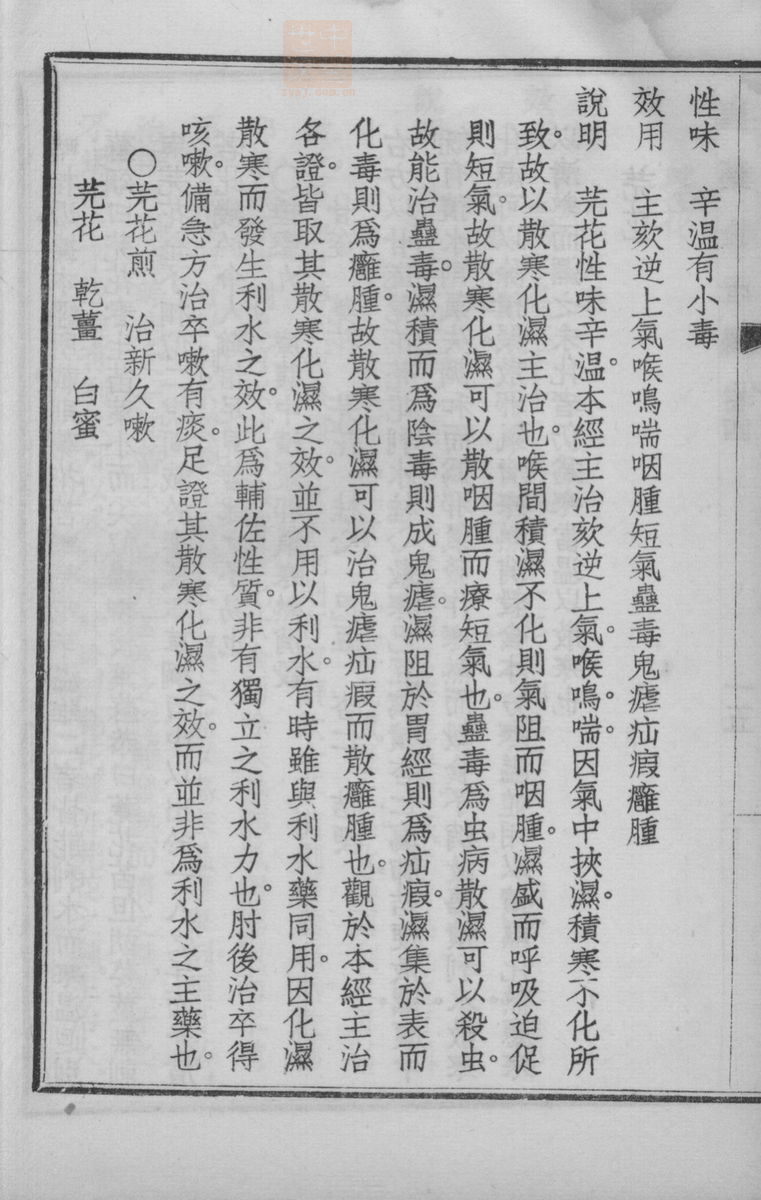 性味　辛温有小毒
效用　主欬逆上氣喉鳴喘咽腫短氣蠱毒鬼瘧疝瘕癰腫
說明　芫花性味辛温。本經主治欬逆上氣。喉鳴。喘。因氣中挾濕。積寒不化所
致。故以散寒化濕主治也。喉間積濕不化則氣阻而咽腫。濕盛而呼吸迫促
則短氣。故散寒化濕可以散咽腫而療短氣也。蠱毒爲虫病散濕可以殺虫。
故能治蠱毒。濕積而爲陰毒則成鬼瘧。濕阻於胃經則爲疝瘕。濕集於表而
化毒則爲癰腫。故散寒化濕可以治鬼瘧疝瘕而散癰腫也。觀於本經主治
各證。皆取其散寒化濕之效。並不用以利水。有時雖與利水藥同用。因化濕
散寒而發生利水之效。此爲輔佐性質。非有獨立之利水力也。肘後治卒得
咳嗽。備急方治卒嗽有痰。足證其散寒化濕之效。而並非爲利水之主藥也。
○芫花煎　治新久嗽
芫花　乾薑　白蜜